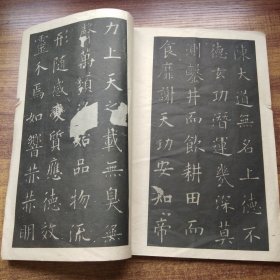 陳大道無名上德不
德玄功潛運幾深莫
測鑿井而飲耕田而
食靡謝天功安知帝
力上天之載無臭無
萬類始品物流
形隨感變質應德效
靈不焉如響赫赫明